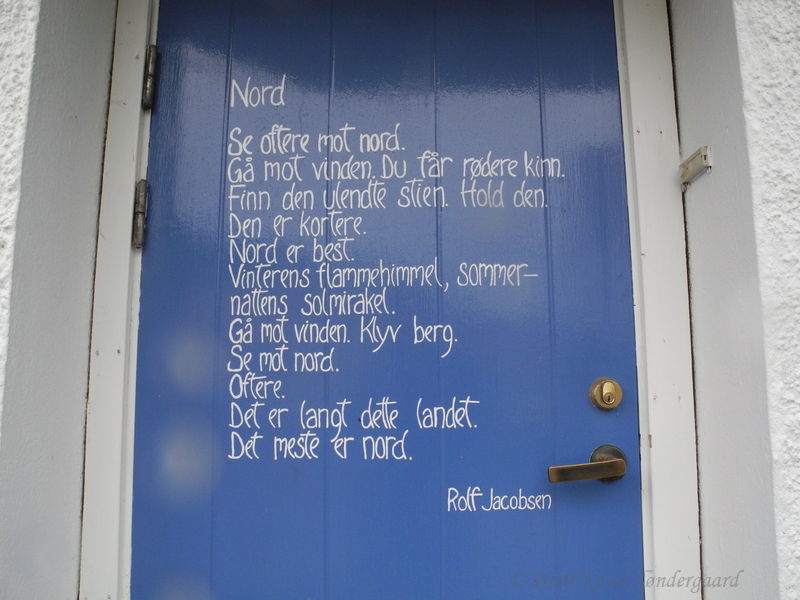 Nord
Se oftere mot nord.
Gå mot vinden. Du får rødere kinn.
Finn den ulendte stien. Hold den.
Den er kortere.
Nord er best.
Vinterens flammehimmel, sommer–
nattens solmirakel.
Gå mot vinden. Klyv berg.
Se mot nord.
Oftere.
Det er langt dette landet.
Det meste er nord.
Rolf Jacobsen
©